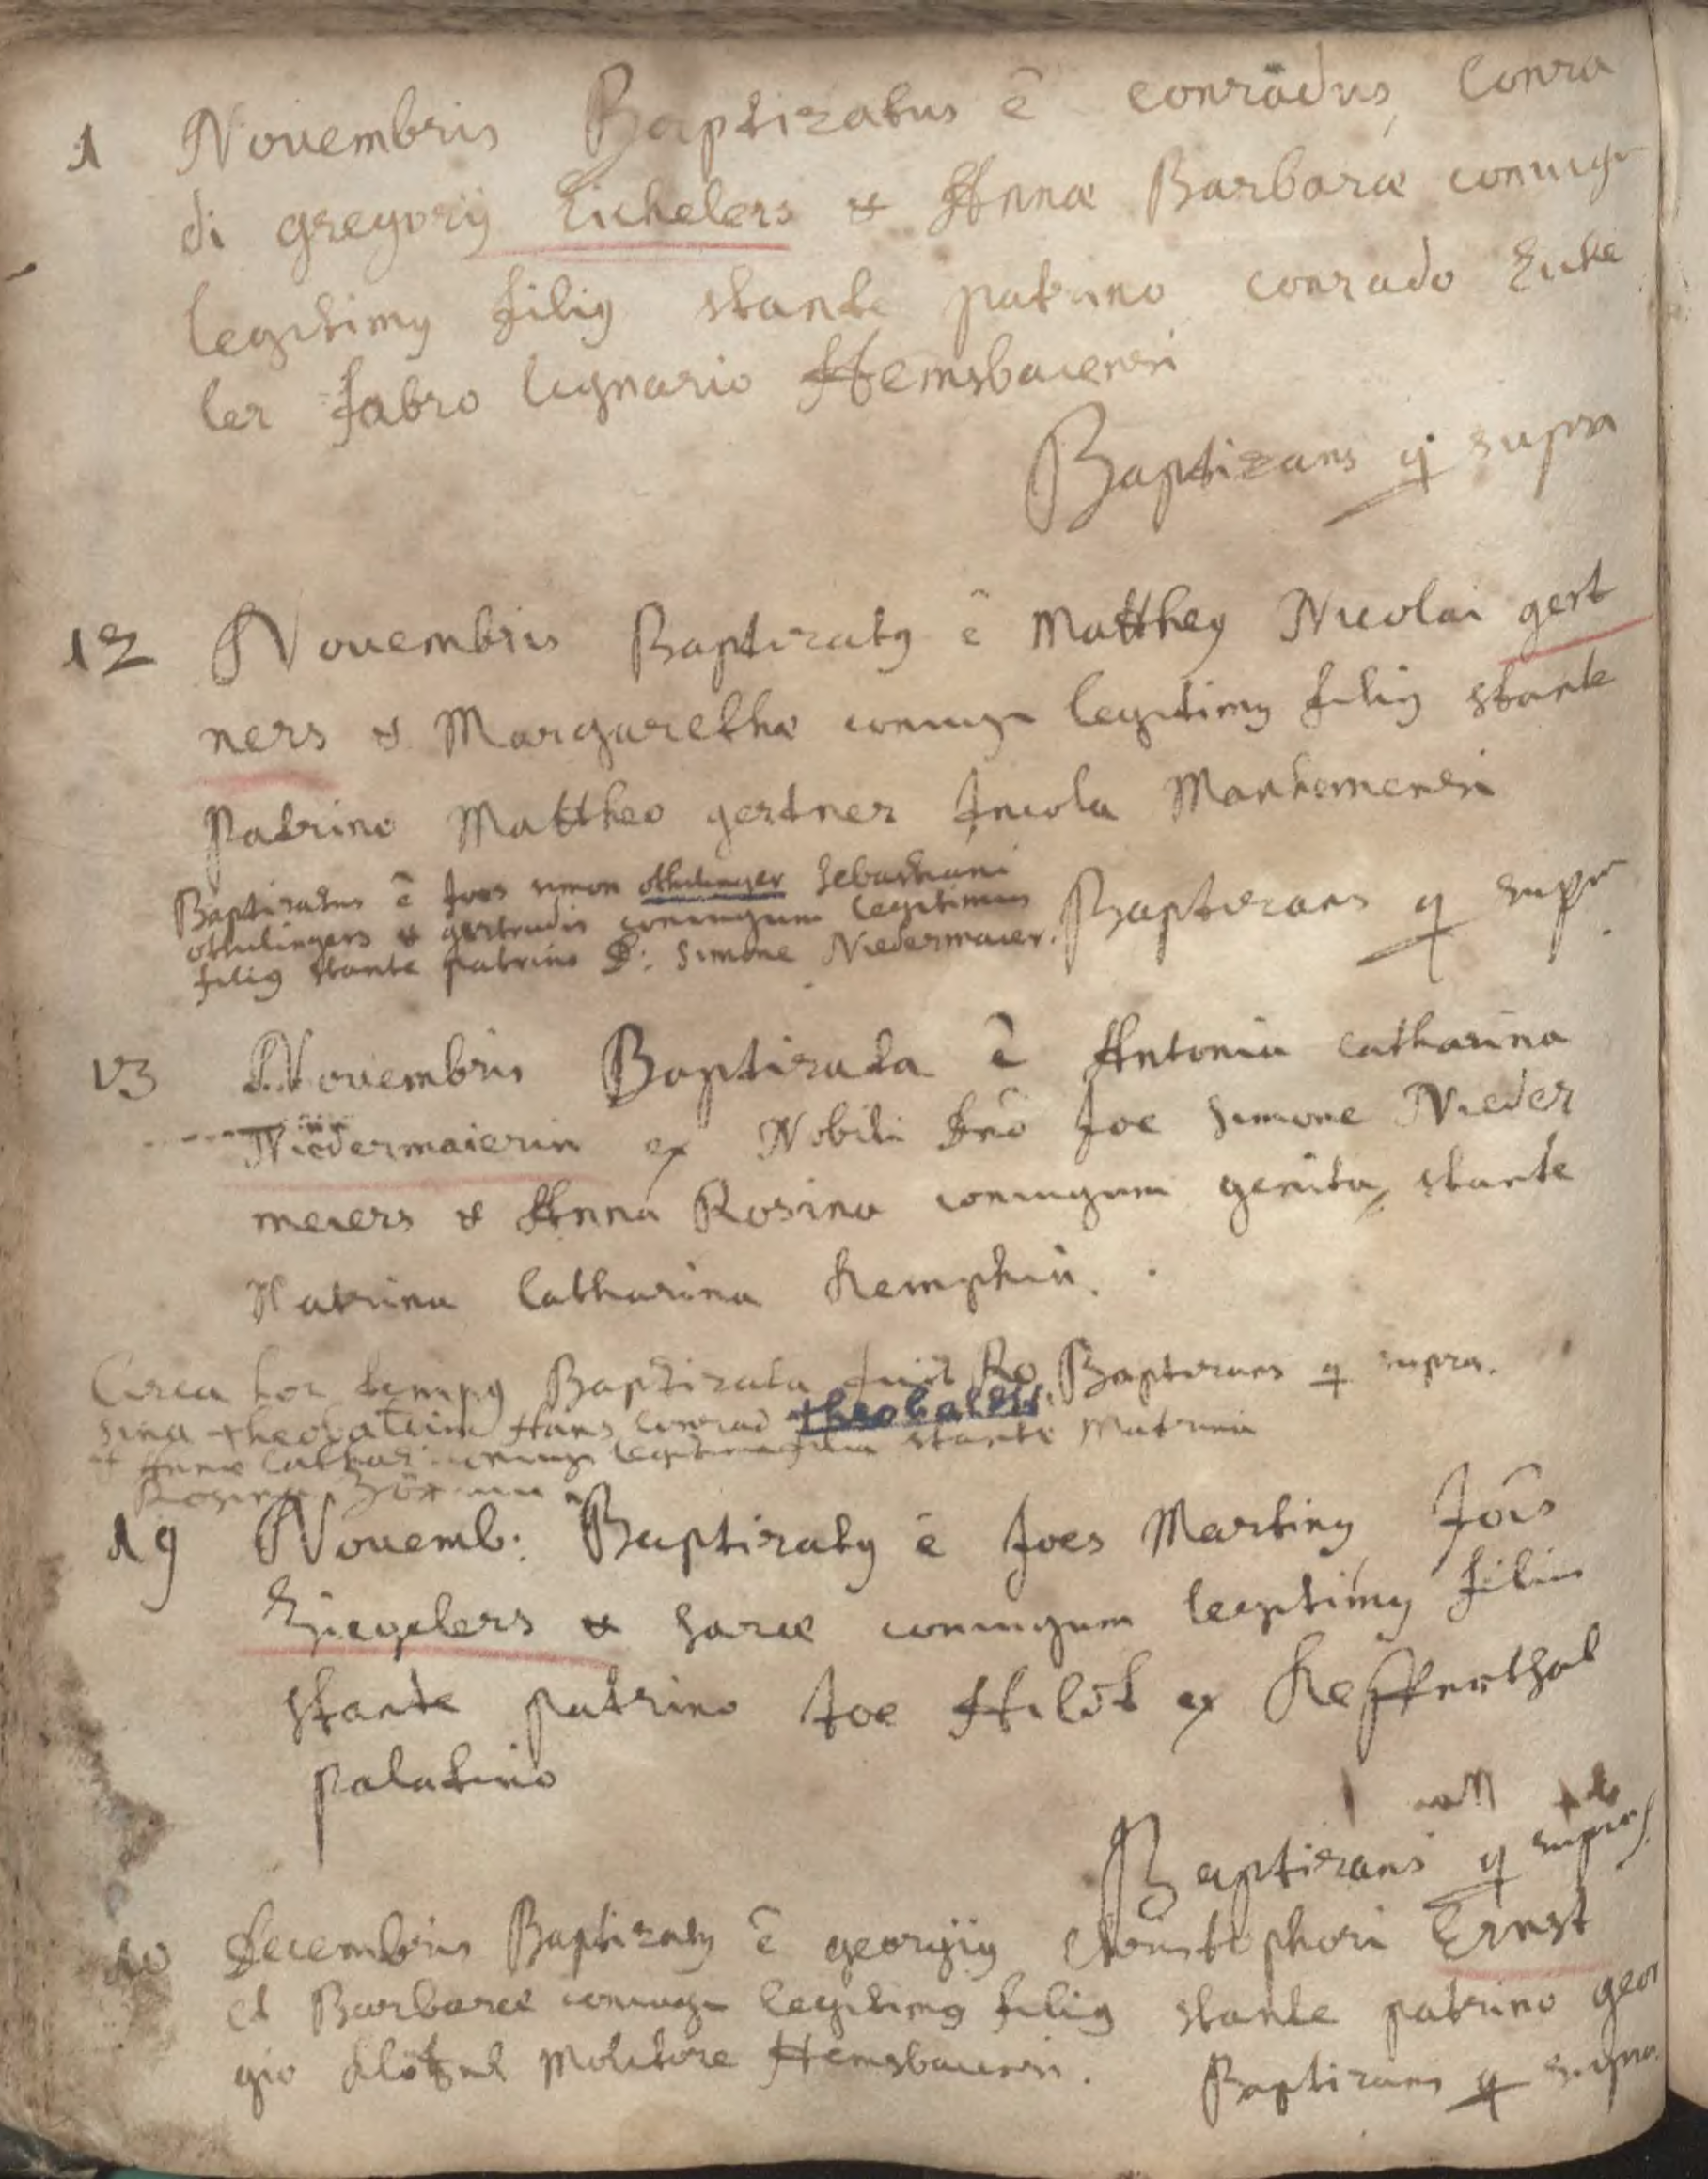 1 Novembris Baptizatus ē conradus, Conra
di gregorij Eichelers & Annæ Barbaræ coniugū
legitimꝰ filiꝰ stante patrino conrado Eiche
ler fabro lignario Hemsbacensi
Baptizans q supra
12 Novembris Baptizatꝰ ē Mattheꝰ Nicolai gert
ners & Margarethæ coniugū legitimꝰ filiꝰ stante
patrino Mattheo gertner Incola Manhemensi
Baptizatus ē Joes simon othelinger Sebastiani
othelingers & gertrudis coniugum legitimus
filiꝰ stante patrino D: Simone Niedermaier.
Baptizans q supra
13 Novembris Baptizata ē Antonia catharina
Niedermaierin ex Nobili Dno Joe Simone Nieder
meiers & Anna Rosina coniugum genita, stante
Matrina Catharina Kemphin.
Baptizans q supra.
Circa hoc tempꝰ Baptizata fuit Ro
sina theobaltin Hans Conrad theobalds
& Annæ Cathar: coniugū legitima filia stante Matrina
Rosina
19 Novemb: Baptizatꝰ ē Joes Martinꝰ Jois
Ziegelers & Saræ coniugum legitimꝰ filius
stante patrino Joe Hildt ex Kefferthal
palatino
Baptizans q supra
10 Decembris Baptizatꝰ ē georgiꝰ Christophori Ernst
et Barbaræ coniugū legitimꝰ filiꝰ stante patrino geor
gio Molitore Hemsbacensi.
Baptizans q supra